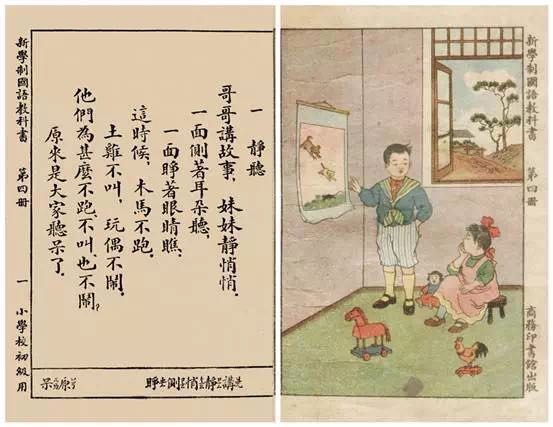 新學制國語教科書 第四冊
商務印書館出版
一 靜聽
哥哥講故事，妹妹靜悄悄，
一面側著耳朵聽，
一面睜著眼睛瞧，
這時候，木馬不跑，
土雞不叫，玩偶不鬧，
他們為甚麼不跑不叫，也不鬧？
原來是大家聽呆了．
講靜悄側睜 原呆
新學制國語教科書 第四冊 一 小學校初級用